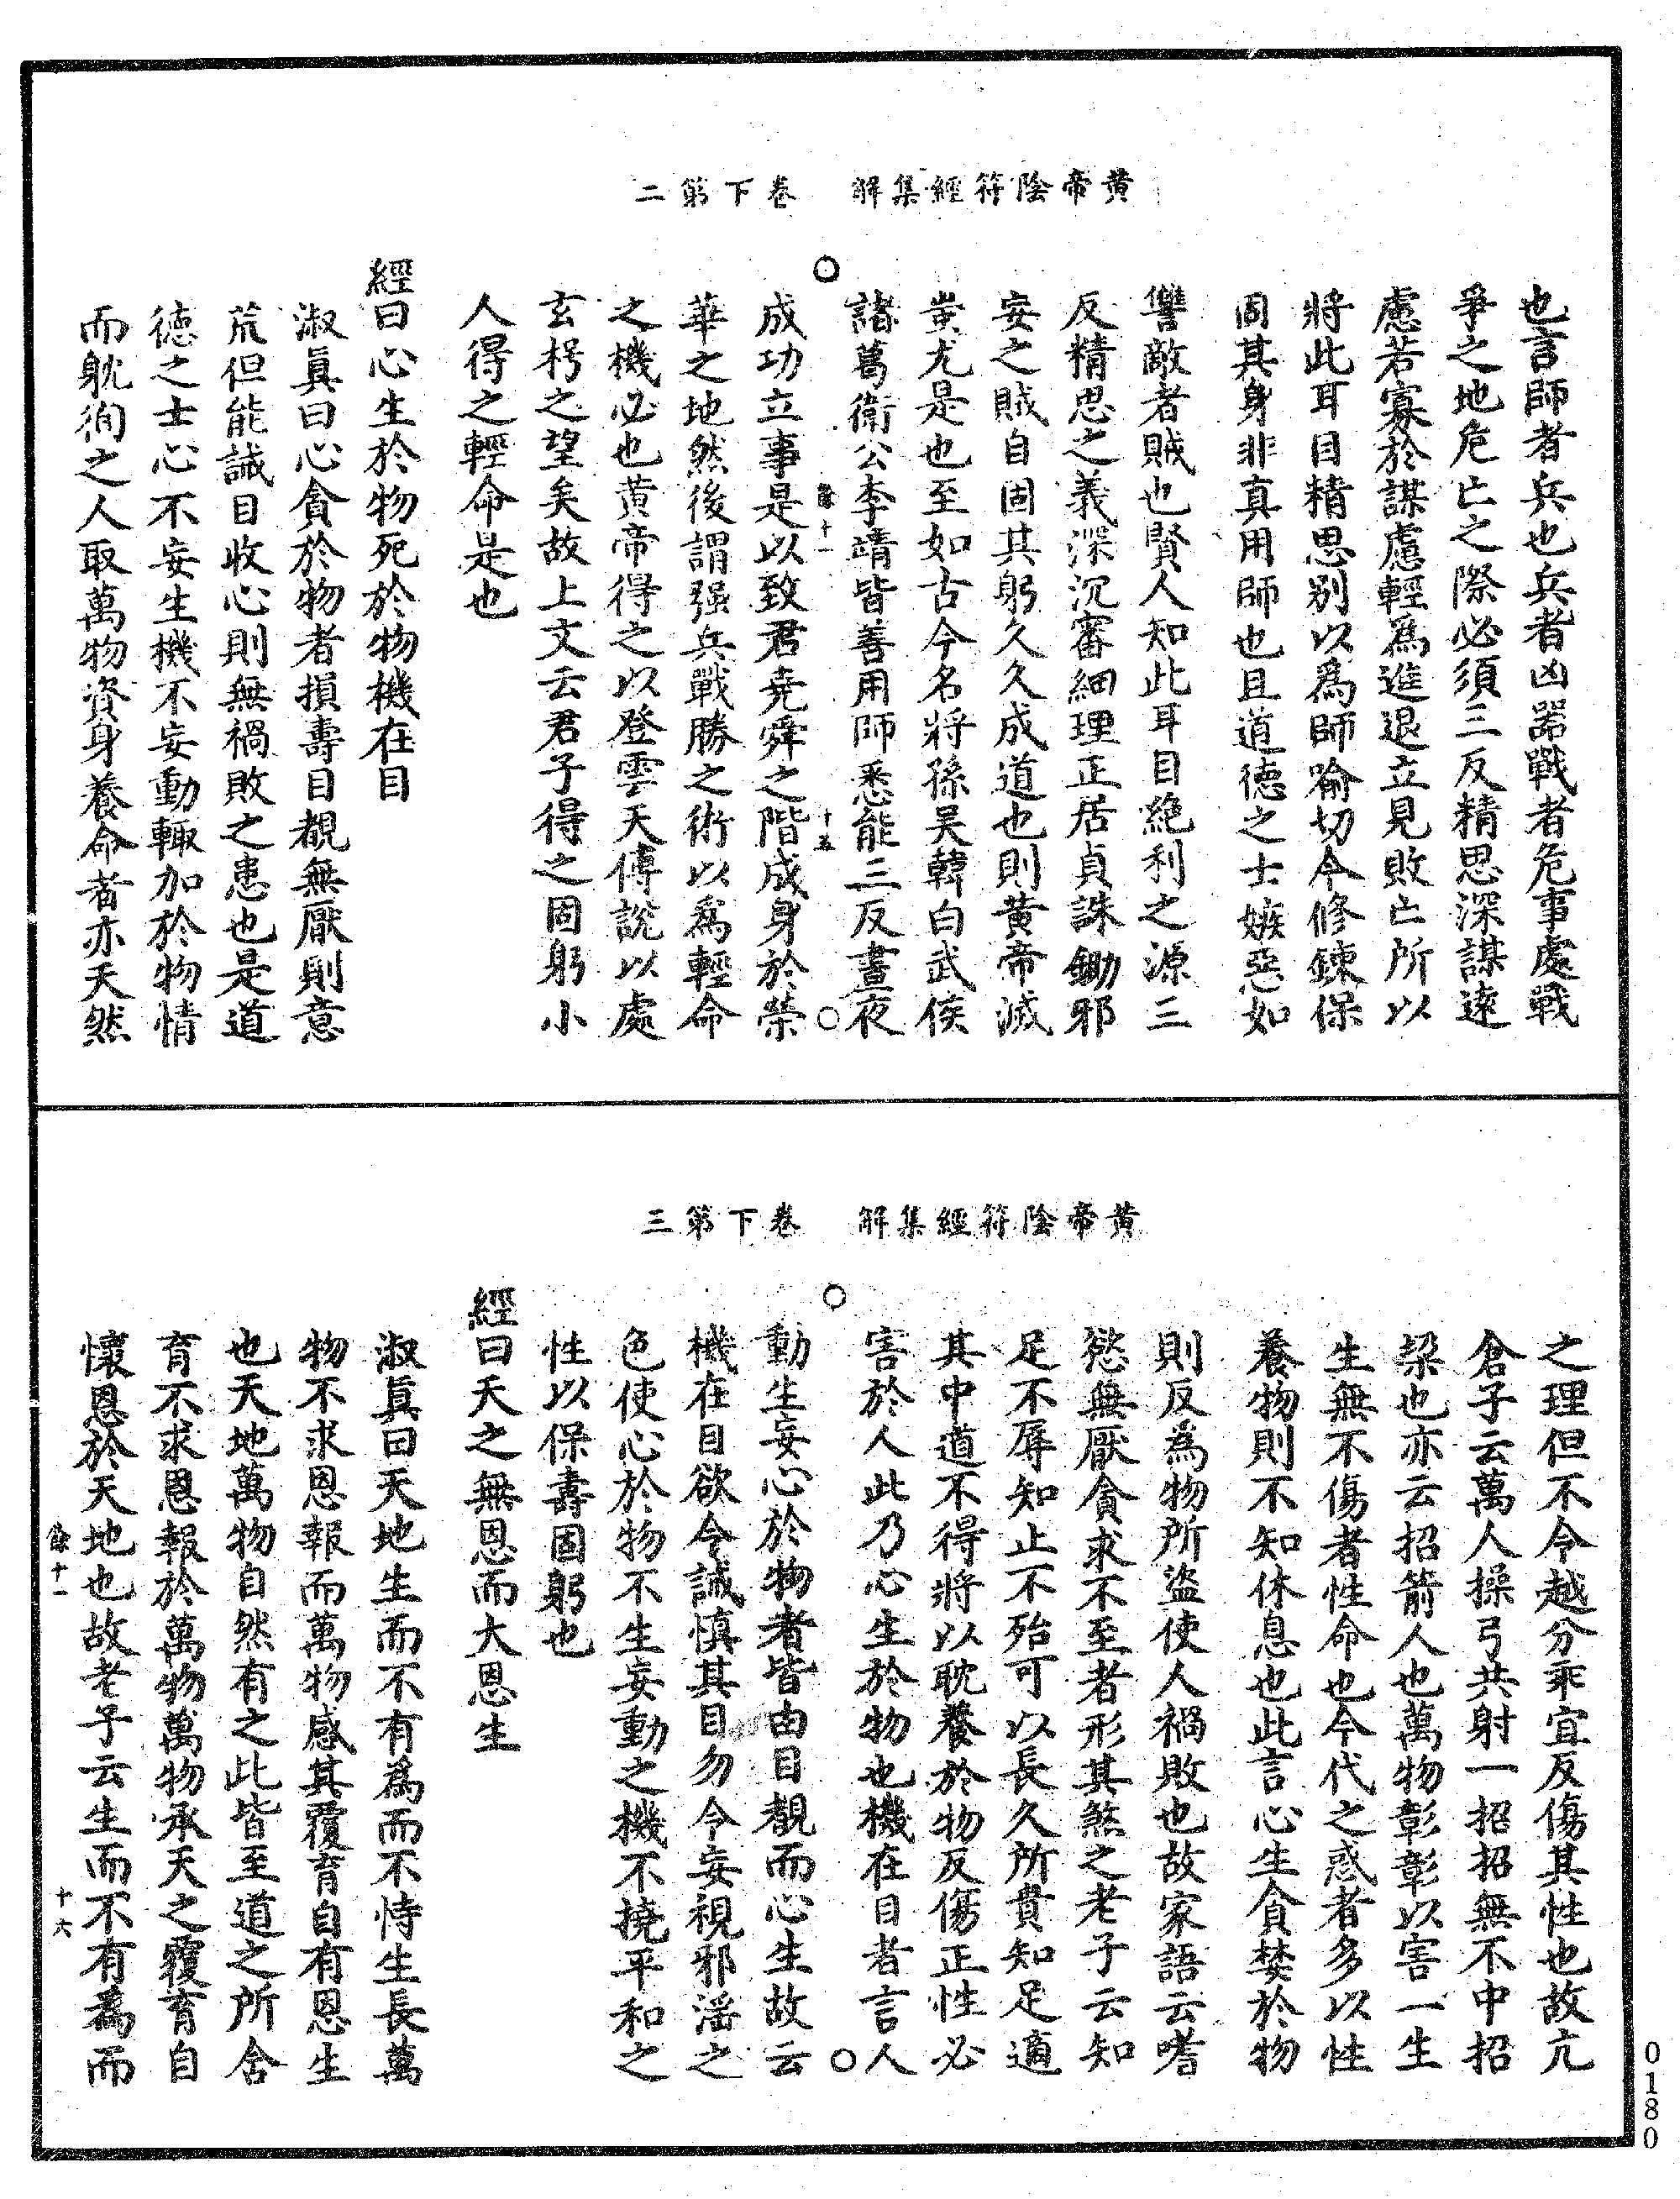 黃帝陰符經集解　卷下第二
也言師者兵也兵者凶器戰者危事處戰
爭之地危亡之際必須三反精思深謀遠
慮若寡於謀慮輕爲進退立見敗亡所以
將此耳目精思別以爲師喻切令修鍊保
固其身非真用師也且道德之士嫉惡如
讐敵者賊也賢人知此耳目絶利之源三
反精思之義深沉審細理正居貞誅鋤邪
妄之賊自固其躬久久成道也則黄帝滅
蚩尤是也至如古今名將孫吴韓白武侯
諸葛衛公李靖皆善用師悉能三反晝夜
餘十一　十五
成功立事是以致君堯舜之階成身於榮
華之地然後謂强兵戰勝之術以爲輕命
之機必也黄帝得之以登雲天傅說以處
玄枵之望矣故上文云君子得之固躬小
人得之輕命是也
經曰心生於物死於物機在目
淑眞曰心貪於物者損壽目覩無厭則意
荒但能誡目收心則無禍敗之患也是道
德之士心不妄生機不妄動輙加於物情
而躭徇之人取萬物資身養命者亦天然
黃帝陰符經集解　卷下第三
之理但不令越分乖宜反傷其性也故亢
倉子云萬人操弓共射一招招無不中招
栔也亦云招箭人也萬物彰彰以害一生
生無不傷者性命也今代之惑者多以性
養物則不知休息也此言心生貪婪於物
則反為物所盜使人禍敗也故家語云嗜
慾無厭貪求不至者形其煞之老子云知
足不辱知止不殆可以長久所貴知足適
其中道不得將以耽養於物反傷正性必
害於人此乃心生於物也機在目者言人
動生妄心於物者皆由目覩而心生故云
機在目欲令誡慎其目勿令妄視邪滛之
色使心於物不生妄動之機不撓平和之
性以保壽固躬也
經曰天之無恩而大恩生
淑眞曰天地生而不有爲而不恃生長萬
物不求恩報而萬物感其覆育自有恩生
也天地萬物自然有之此皆至道之所含
育不求恩報於萬物萬物承天之覆育自
懷恩於天地也故老子云生而不有爲而
餘十一　十六
0180